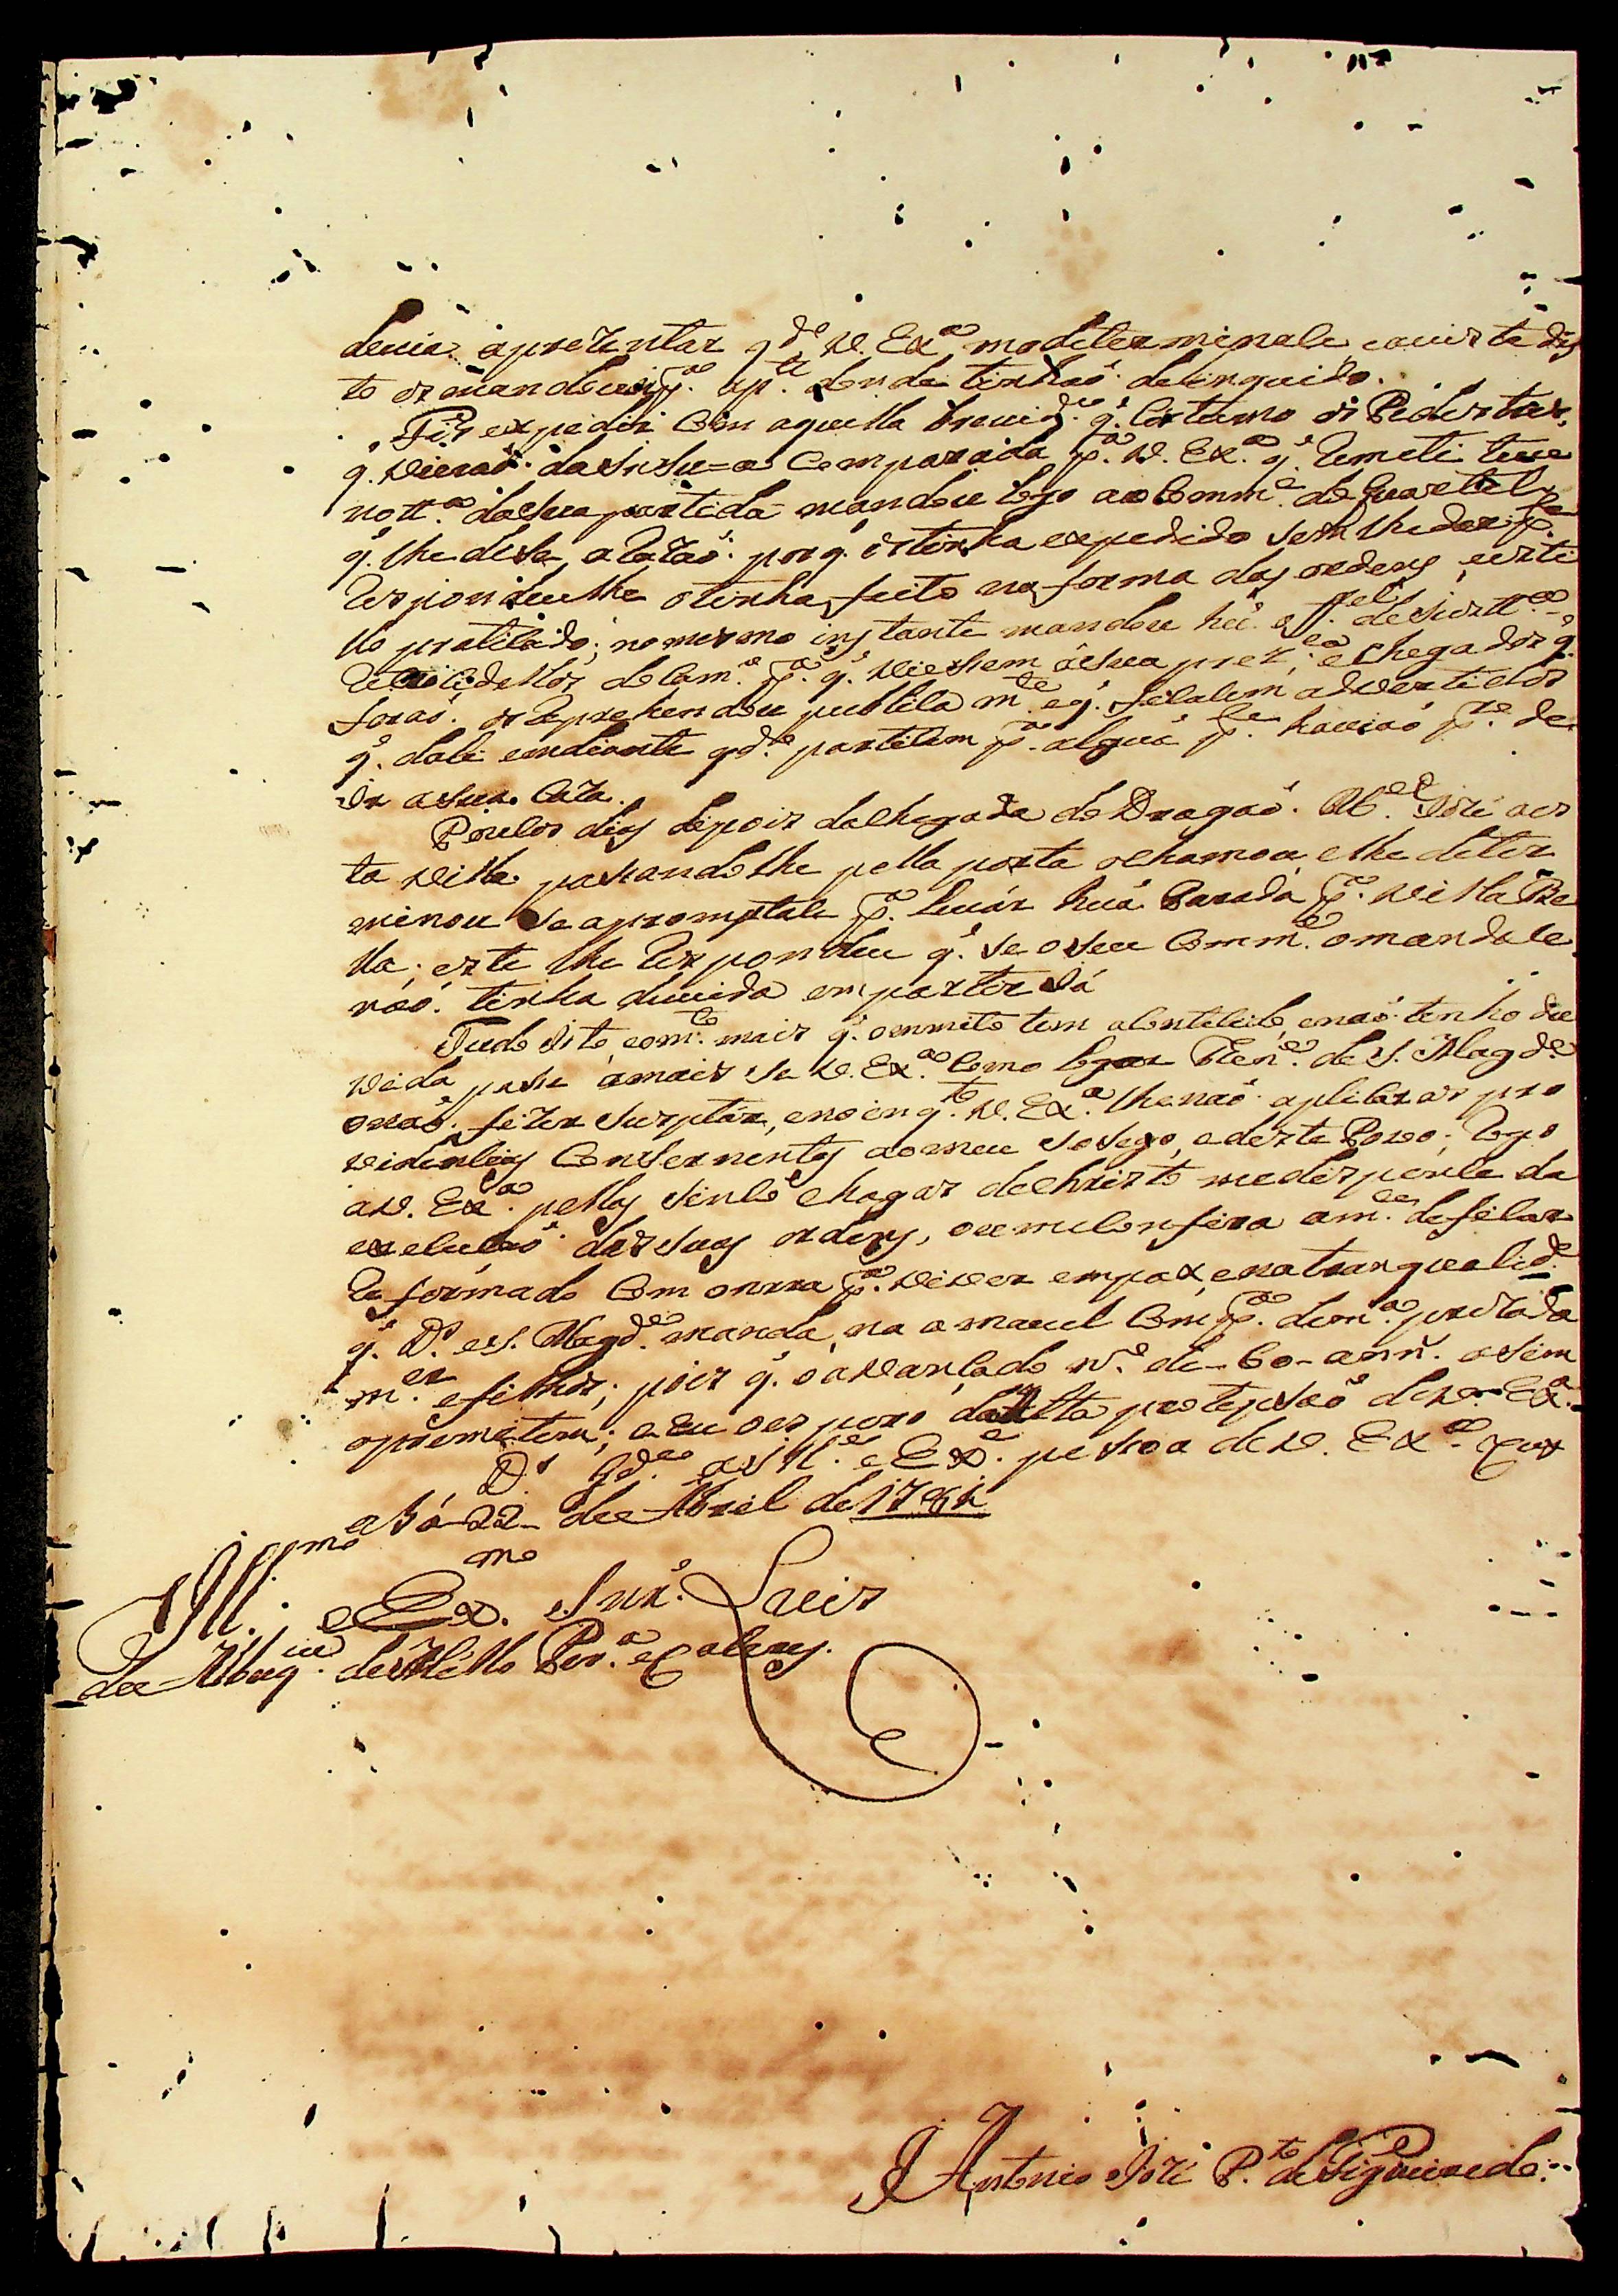 devia aprezentar qd.º V. Ex.ª mo determinase e avista dis
to os mandou p.ª ap.te donde tinhaõ delinquido.
Fis expedir com aquella brevid.e q̃ costumo os Pedestres,
q̃ vieraõ da Insu=a Comparada p.ª V. Ex.ª q̃ remeti teve
nott.ª dasua partida mandou logo ao Comm.e do quartel
q̃ lhe dese a razaõ porq̃ os tinha expedido sem lhe dar p.te
respondeulhe o tinha feito na forma das ordens, e esti
llo praticado; no mesmo instante mandou hũ off.el de Just.ª
p.ª q̃ viesem á sua prez.ca, e chegados q̃
foraõ os reprehendeu publica m.te e q̃ ficasem advertidos
q̃ dali endiante qd.º partisem p.ª algũa p.te haviaõ p.ro de
ir asua Caza.
Poucos dias depois dachegada do Dragaõ M.el Jozé aes
ta villa pasandolhe pella porta ochamou elhe deter
minou se apromptase p.ª levár hũa Parada p.ª Villa Be
lla; este lhe respondeu q̃ se oseu Comm.e omandase
naõ tinha duvida em partir Já
Tudo isto, eom.to mais q̃ ommito tem acontecido, enaõ tenho du
vida pase amais se V. Ex.ª Como logar Then.e de S. Magd.e
onaõ fizer susptár, eno inq.to V. Ex.ª lhenaõ aplicar as pro
videncias Consernentes aomeu sosego, edeste Povo; rogo
aV. Ex.ª pellas sinco chagas dechristo medespence da
execuçaõ dassuas ordens, oumeconfira am.ce deficar
reformado Com onrra p.ª viver empax, ena tranqueelid.e
q̃ D.s e S. Magd.e manda, na amavel Comp.ª dem.ª prezada
m.er efilhos; pois q̃ o avançado n.º de-60-ann. asim
oprometem; eEu oespero daAlta protecsaõ deV. Ex.ª
D.s Gd.e a Ill.e e Ex.e pesoa deV. Ex.ª Cuy
abá-22-de Abril de 1784
Ill.mo e Ex.mo Snr̃. Luis
de Albuq.ue de Mello Per.ª e Caceres.
Antonio Jozé P.to de Figueiredo.